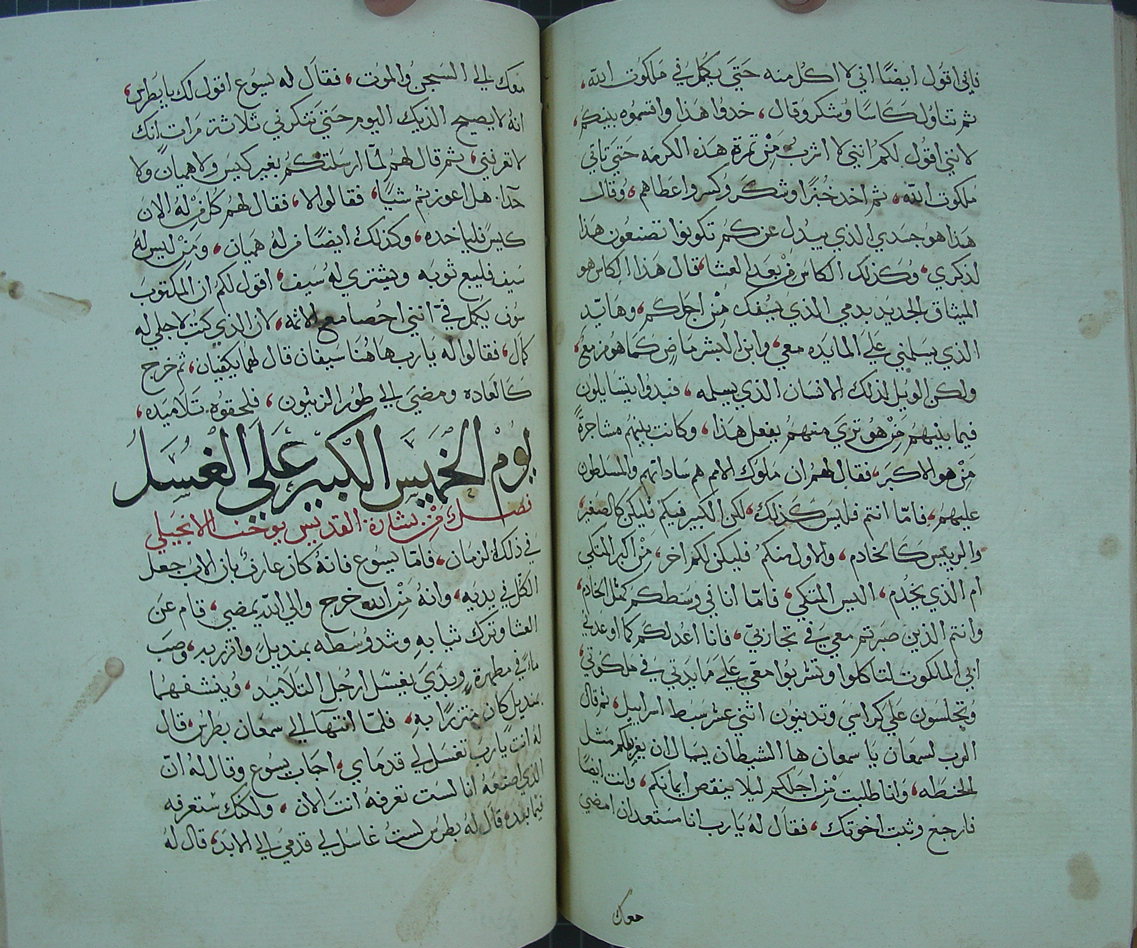 فاني اقول ايضًا اني لا اكل منه حتي يكمل في ملكوت الله،
ثم تناول كاسًا وشكر وقال، خدوا هذا واقسموه بينكم،
لانني اقول لكم انني لا اشرب من تمرة هذه الكرمه حتي تاتي
ملكوت الله، ثم اخد خبزًا وشكر وكسر واعطاهم، وقال
هذا هو جسدي الذي يبدل عنكم تكونوا تصنعون هذا
لذكري، وكذلك الكاس من بعد العشا، قال هذا الكاس هو
الميثاق الجديد بدمي الذي يسفك من اجلكم، وها يد
الذي يسلمني علي المايده معي، وابن البشر ماض كما هو مزمع،
ولكن الويل لذلك الانسان الذي يسلمه، فبدوا يتسايلون
فيما بينهم من هو تري منهم يفعل هذا، وكانت بينهم مشاجرةً
من هو الاكبر، فقال لهم ان ملوك الامم هم ساداتهم والمسلطون
عليهم، فامّا انتم فليس كذلك، لكن الكبير فيكم فليكن كالصغير،
والرييس كالخادم، والاول منكم فليكن لكم اخر، من اكبر المتكي
ام الذي يخدم، اليس المتكي، فامّا انا في وسطكم كمثل الخادم،
وانتم الذين صبرتم معي في تجاربي، فانا اعد لكم كما اوعدني
ابي الملكوت لتاكلوا وتشربوا معي علي مايدتي في ملكوتي،
وتجلسون علي كراسي وتدينون اثني عشر سبط اسراييل، ثم قال
الرب لسمعان يا سمعان ها الشيطان يسال ان يغربلكم مثل
الحنطه، وانا طلبت من اجلكم ليلا ينقص ايمانكم، وانت ايضًا
فارجع وثبت اخوتك، فقال له يا رب انا مستعد ان امضي
معك
معك الي السجن والموت، فقال له يسوع اقول لك يا بطرس،
انه لا يصيح الديك اليوم حتي تنكرني ثلاثة مرات انك
لا تعرفني، ثم قال لهم لمّا ارسلتكم بغير كيس ولا هميان ولا
حدا، هل اعوزتم شيًا، فقالوا لا، فقال لهم كل من له الان
كيس فلياخده، وكذلك ايضًا من له هميان، ومن ليس له
سيف فليبع ثوبه ويشتري له سيف، اقول لكم ان المكتوب
سوف يكمل في انني احصا مع الاثمه، لان الذي كتب لاجلي له
كمال، فقالوا له يا رب هاهنا سيفان قال لهما يكفيان، ثم خرج
كالعاده ومضي الي طور الزيتون، فلحقوه تلاميده،
يوم الخميس الكبير علي الغسل
فصل من بشارة القديس يوحنا الانجيلي
في ذلك الزمان، فامّا يسوع فانه كان عارف بان الاب جعل
الكل في يديه، وانه من الله خرج والي الله يمضي، قام عن
العشا وترك ثيابه وشد وسطه بمنديل واتزر به، وصب
ماء في مطهرة، وبدي يغسل ارجل التلاميد، وينشفهما
بمنديل كان متزرًا به، فلمّا انتها الي سمعان بطرس، قال
له انت يا رب تغسل لي قدماي، اجاب يسوع وقال له انّ
الذي اصنعه انا لست تعرفه انت الان، ولكنك ستعرفه
فيما بعده قال له بطرس لست غاسل لي قدمي الي الابد، قال له